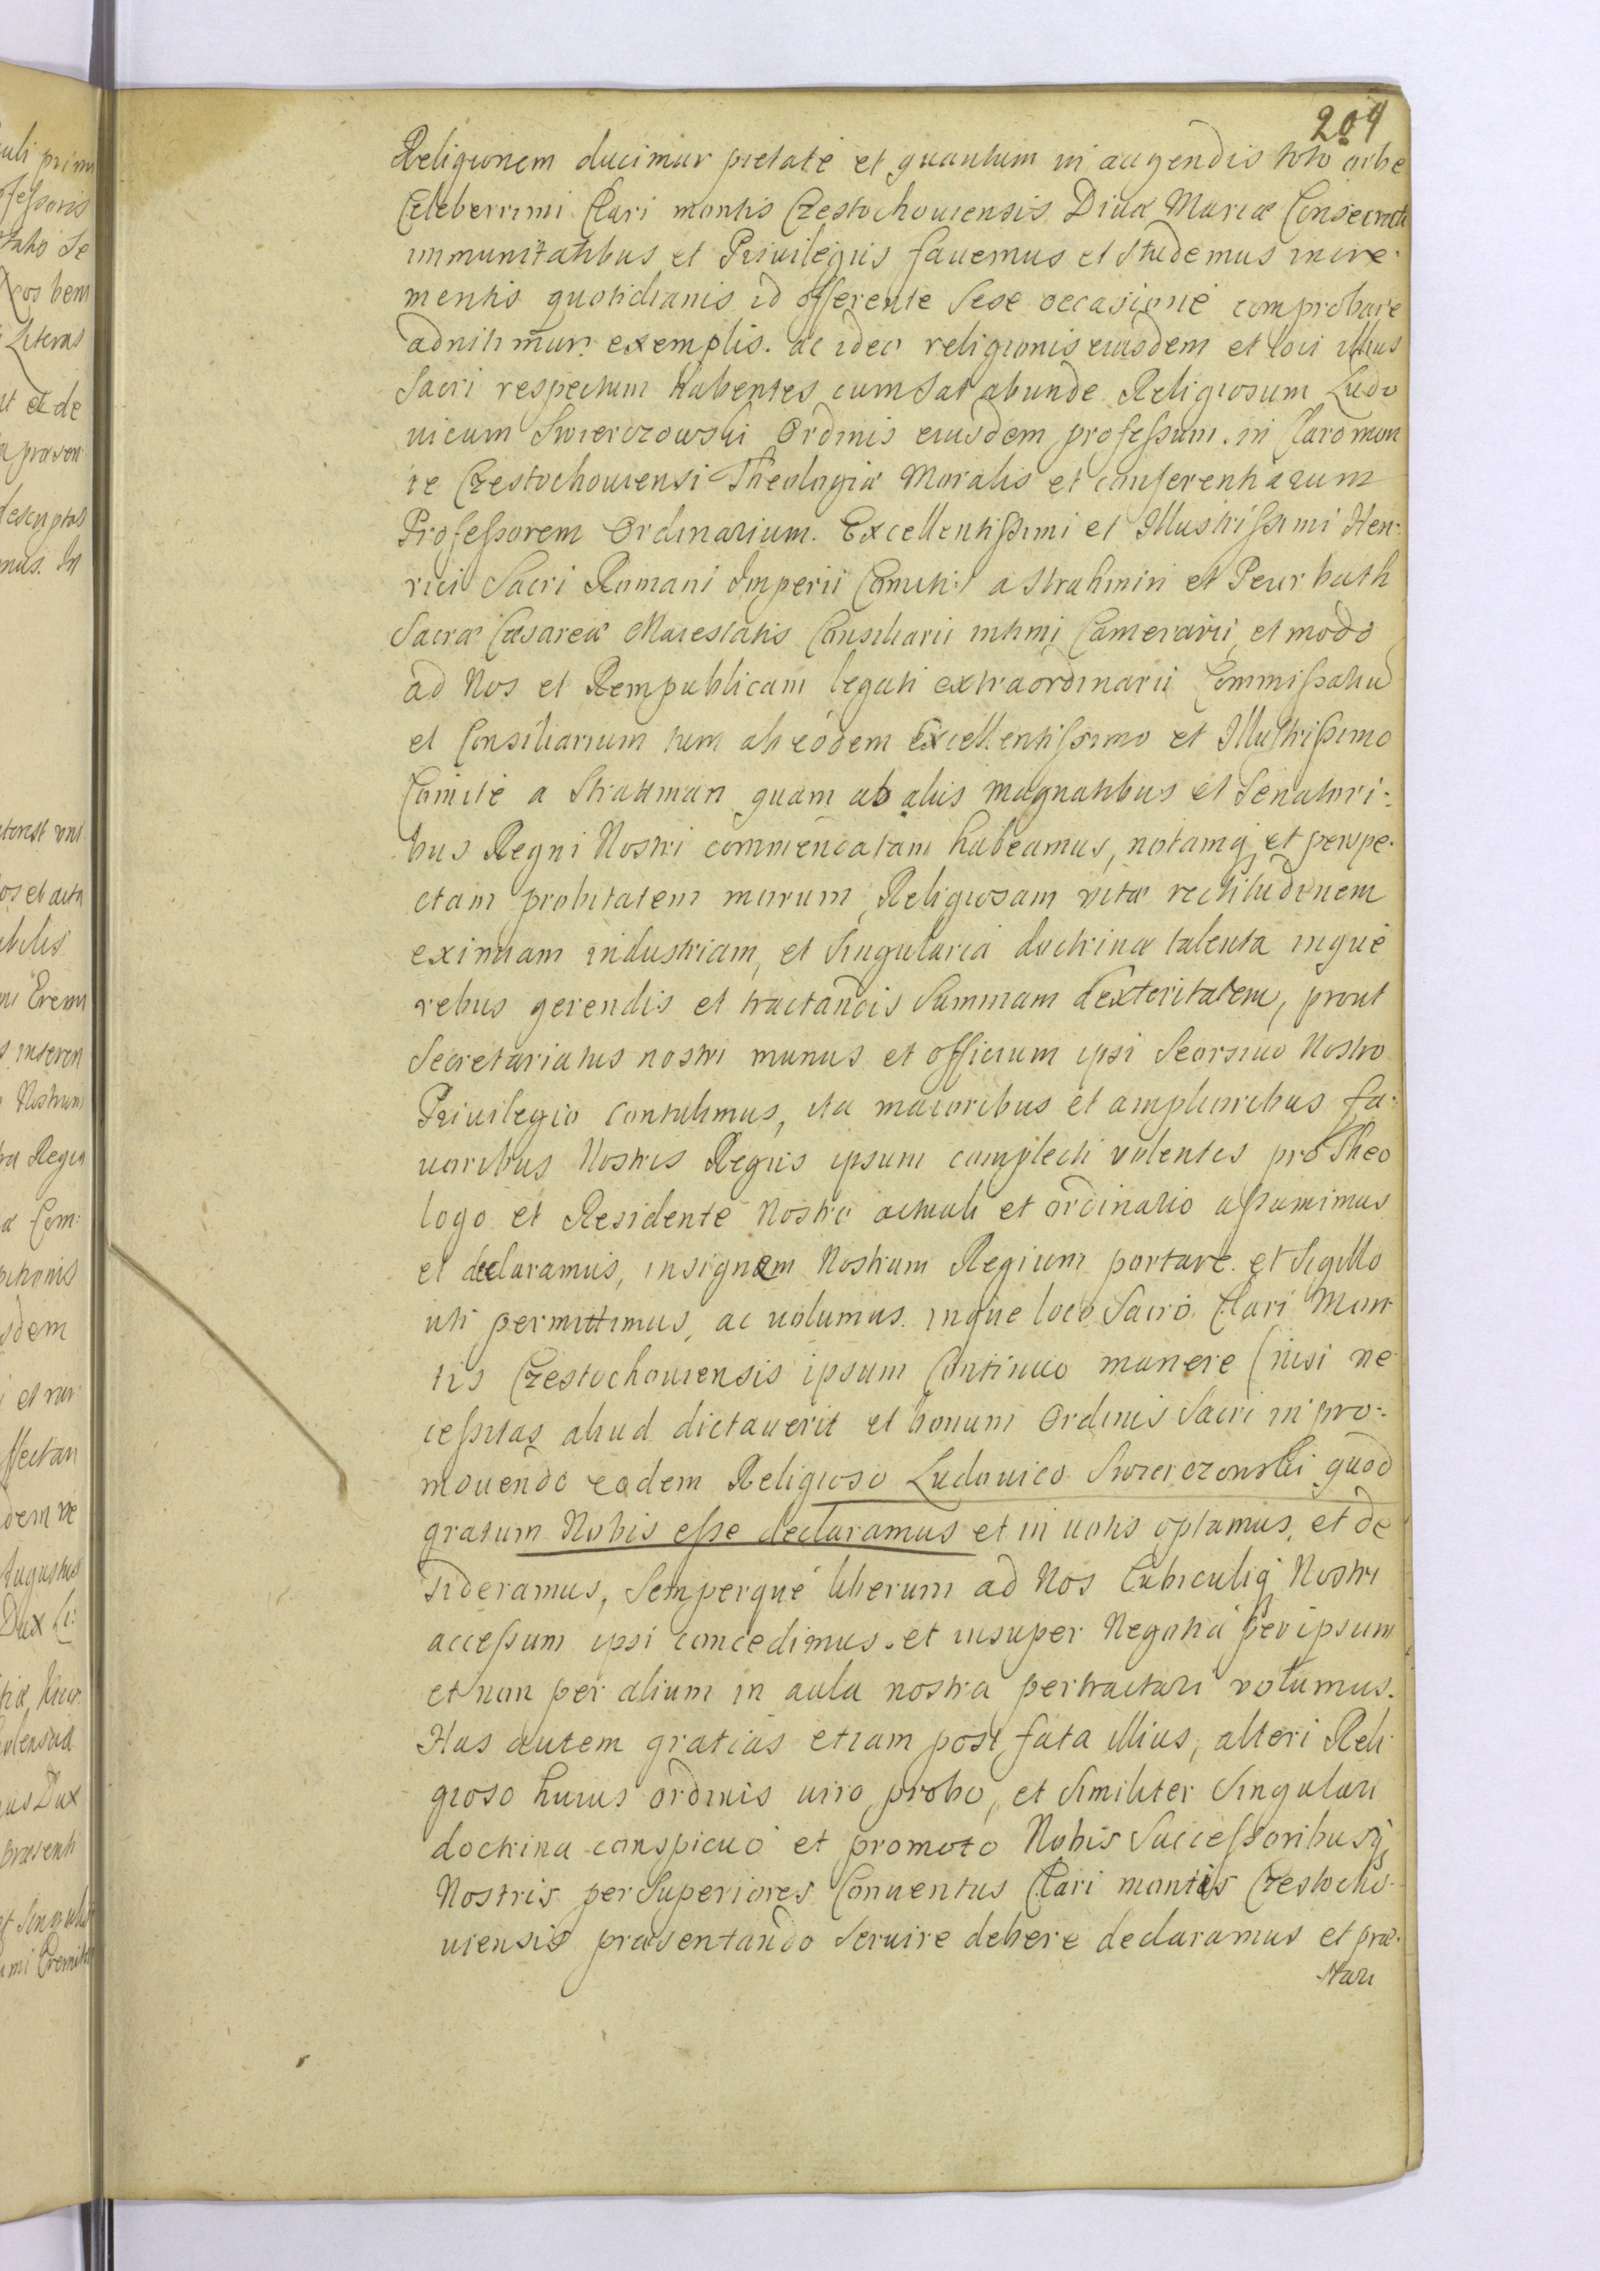 204
Religionem ducimur pietate et quantum in augendis toto orbe
Celeberrimi Clari montis Częstochouiensis Diuæ Mariæ Consecrati
immunitatibus et Priuilegiis fauemus et studemus incre-
mentis quotidianis id offerente sese occasione comprobare
adnitimur exemplis. ac ideo religionis eiusdem et loci illius
Sacri respectum habentes, cum sat abunde Religiosum Ludo
uicum Swierczowski Ordinis eiusdem professum. in Claro mon
te Częstochouiensi Theologiæ Moralis et conferentiarum
Professorem Ordinarium. Excellentissimi et Illustrissimi Hen-
rici Sacri Romani Imperii Comitis a Strahmin et Peurbath
Sacræ Cæsareæ Maiestatis Consiliarii intimi Camerarii, et modo
ad Nos et Rempublicam legati extraordinarii Commissarium
et Consiliarium tum ab eodem Excellentissimo et Illustrissimo
Comite a Strattman quam ab aliis Magnatibus et Senatori-
bus Regni Nostri commendatam habeamus, notamq et perspe-
ctam probitatem morum, Religiosam vitæ rectitudinem
eximiam industriam, et singularia doctrinæ talenta inque
rebus gerendis et tractandis summam dexteritatem, prout
Secretariatus nostri munus et officium ipsi Seorsiuo Nostro
Priuilegio contulimus, ita maioribus et amplioribus fa-
uoribus Nostris Regiis ipsum complecti volentes pro Theo
logo et Residente Nostro actuali et ordinario assumimus
et declaramus, insignem Nostrum Regium portare et Sigillo
uti permittimus, ac uolumus. inque loco Sacro Clari Mon-
tis Częstochouiensis ipsum Continuo manere (nisi ne-
cessitas aliud dictauerit et bonum Ordinis Sacri in pro-
mouendo eodem Religioso Ludouico Swierczowski quod
gratum Nobis esse declaramus et in uotis optamus, et de
sideramus, semperque liberum ad Nos Cubiculiq Nostri
accessum ipsi concedimus. et insuper Negotia per ipsum
et non per alium in aula nostra pertractari volumus.
Has autem gratias etiam post fata illius, alteri Reli-
gioso huius ordinis uiro probo, et similiter singulari
doctrina conspicuo et promoto Nobis Successoribusq
Nostris per Superiores Conuentus Clari montis Częstocho-
uiensis præsentando seruire debere declaramus et præ-
stari